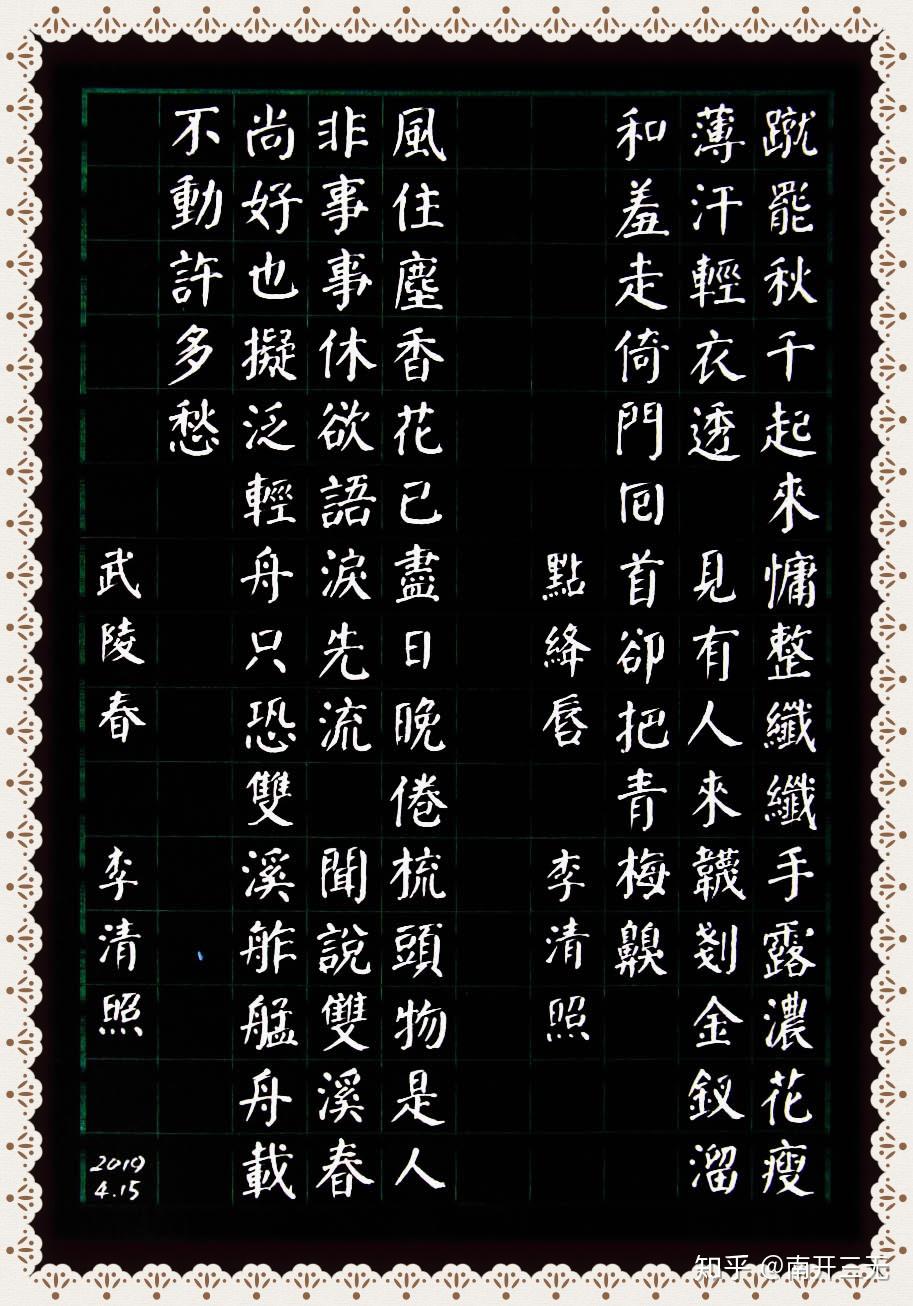 蹴罷秋千起來慵整纖纖手露濃花瘦
薄汗輕衣透 見有人來韈剗金釵溜
和羞走倚門回首卻把青梅齅
點絳唇 李清照
風住塵香花已盡日晚倦梳頭物是人
非事事休欲語淚先流 聞說雙溪春
尚好也擬泛輕舟只恐雙溪舴艋舟載
不動許多愁
武陵春 李清照
2019
4.15
知乎 @南开三无